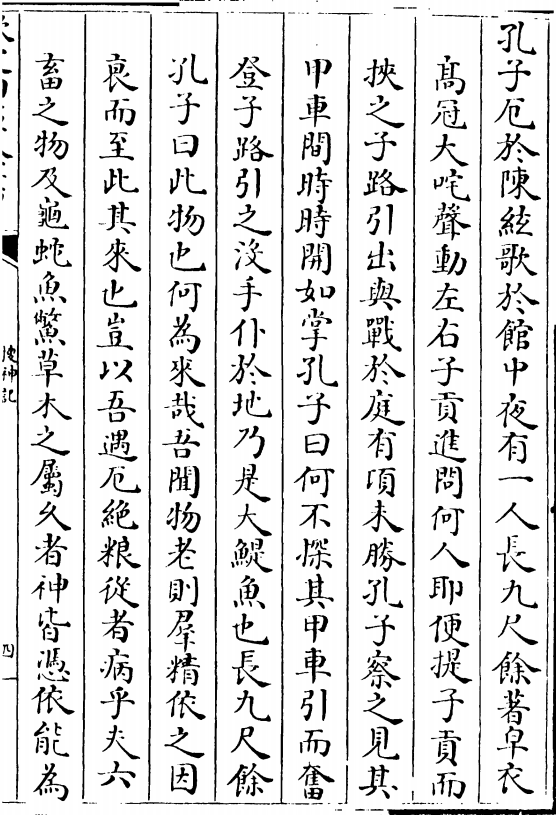 孔子厄於陳絃歌於館中夜有一人長九尺餘著皁衣
髙冠大咤聲動左右子貢進問何人耶便提子貢而
挾之子路引出與戰於庭有頃未勝孔子察之見其
甲車間時時開如掌孔子曰何不探其甲車引而奮
登子路引之沒手仆於地乃是大鯷魚也長九尺餘
孔子曰此物也何為來哉吾聞物老則羣精依之因
衰而至此其來也豈以吾遇厄絶粮從者病乎夫六
畜之物及龜蛇魚鱉草木之屬久者神皆憑依能為
搜神記
四